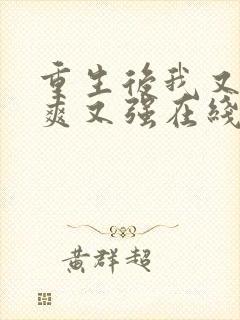 重生後我又
爽又强在綫
黄群超